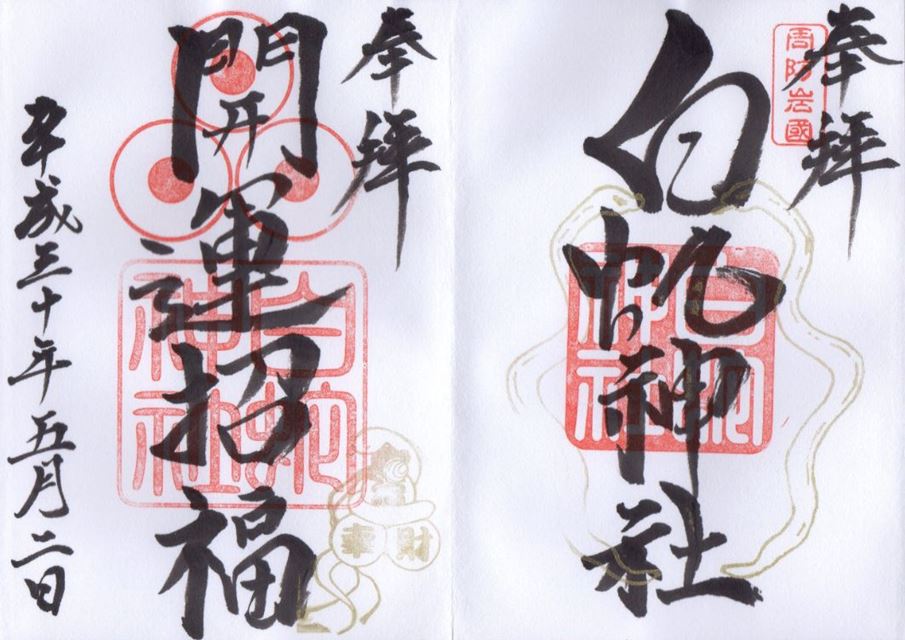 奉拝
周防岩國
白虵神社
白虵
神社
奉拝
開運招福
白虵
神社
財
平成三十年五月二日